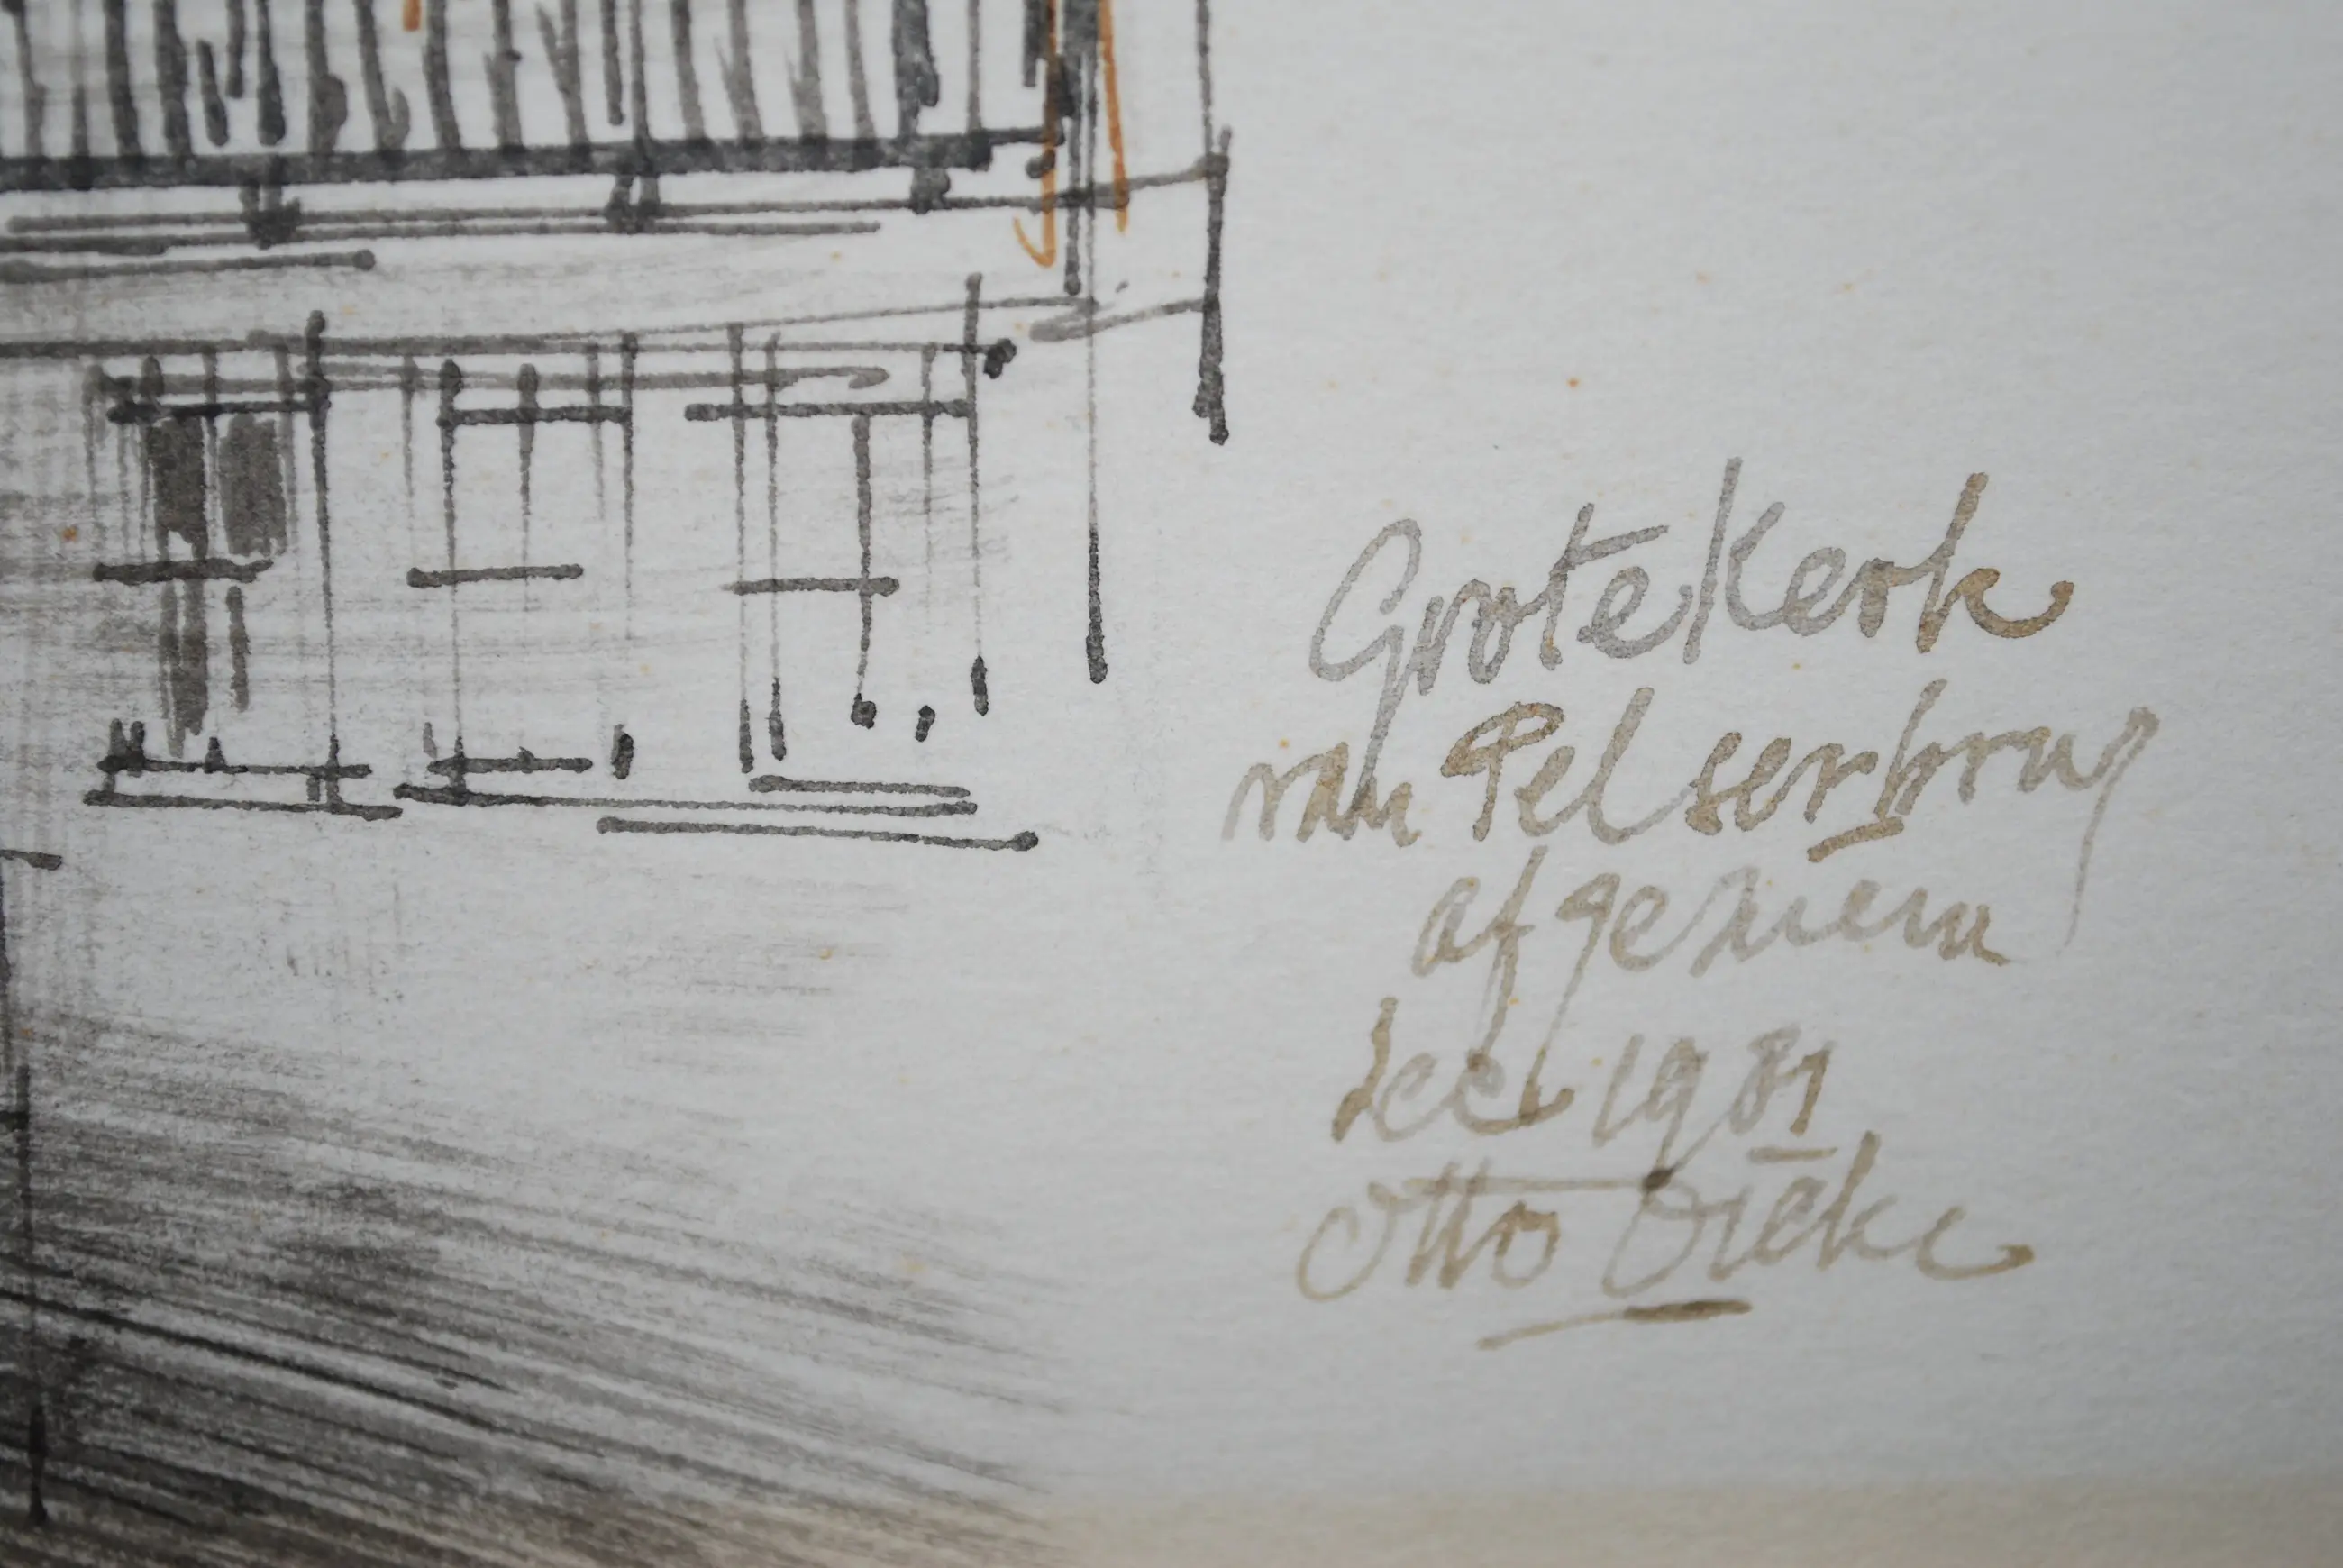 Grote Kerk
van Pelserbrug
afgezien
dec 1981
Otto Dicke